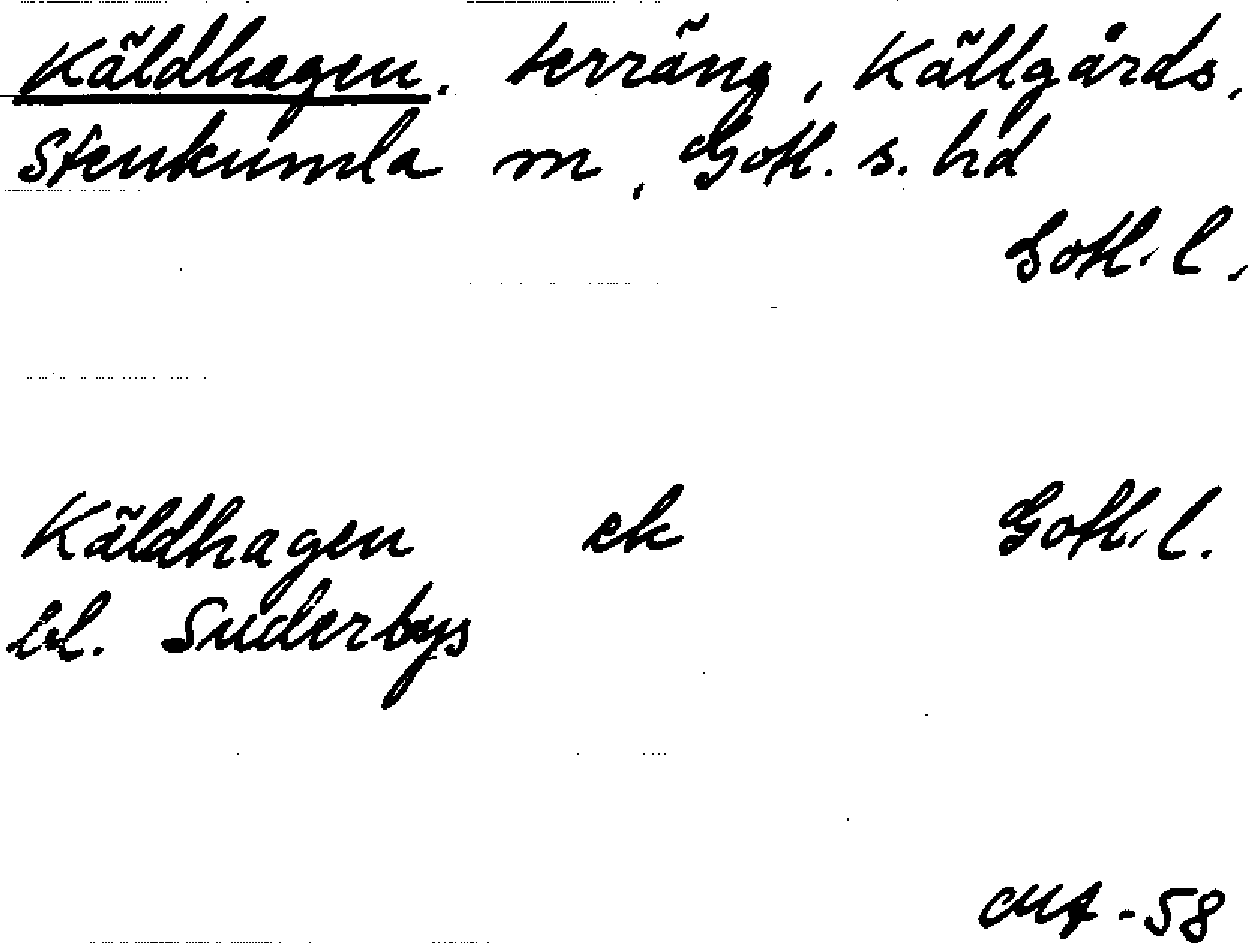 Käldhagen, terräng, Källgårds,
Stenkumla sn, Gotl. s. hd
Gotl. l.
Käldhagen ek Gotl. l.
bl. Suderbys
-58